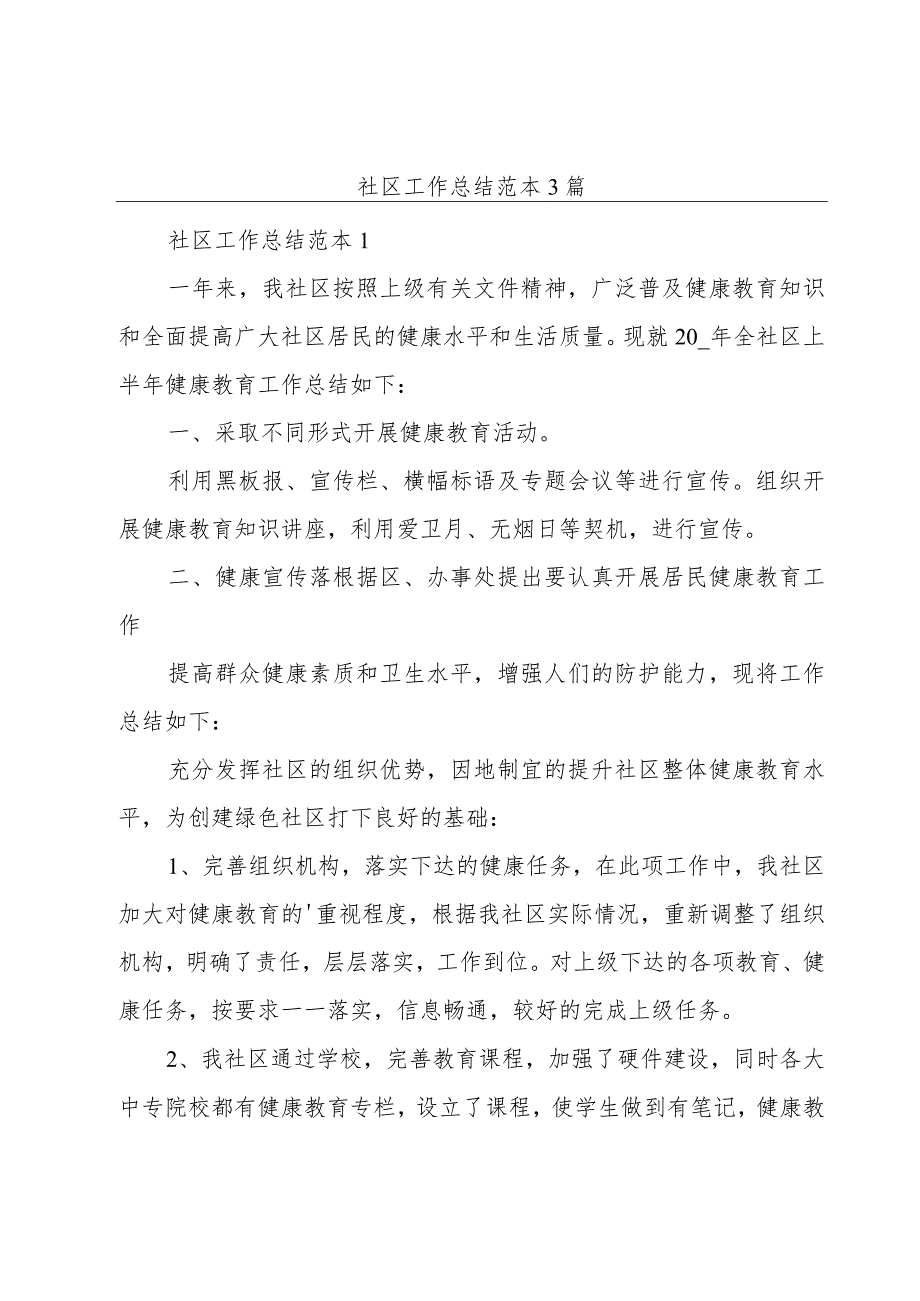 社区工作总结范本 3 篇
社区工作总结范本 1
一年来，我社区按照上级有关文件精神，广泛普及健康教育知识
和全面提高广大社区居民的健康水平和生活质量。现就 20_年全社区上
半年健康教育工作总结如下：
一、采取不同形式开展健康教育活动。
利用黑板报、宣传栏、横幅标语及专题会议等进行宣传。组织开
展健康教育知识讲座，利用爱卫月、无烟日等契机，进行宣传。
二、健康宣传落根据区、办事处提出要认真开展居民健康教育工
作
提高群众健康素质和卫生水平，增强人们的防护能力，现将工作
总结如下：
充分发挥社区的组织优势，因地制宜的提升社区整体健康教育水
平，为创建绿色社区打下良好的基础：
1、完善组织机构，落实下达的健康任务，在此项工作中，我社区
加大对健康教育的'重视程度，根据我社区实际情况，重新调整了组织
机构，明确了责任，层层落实，工作到位。对上级下达的各项教育、健
康任务，按要求一一落实，信息畅通，较好的完成上级任务。
2、我社区通过学校，完善教育课程，加强了硬件建设，同时各大
中专院校都有健康教育专栏，设立了课程，使学生做到有笔记，健康教